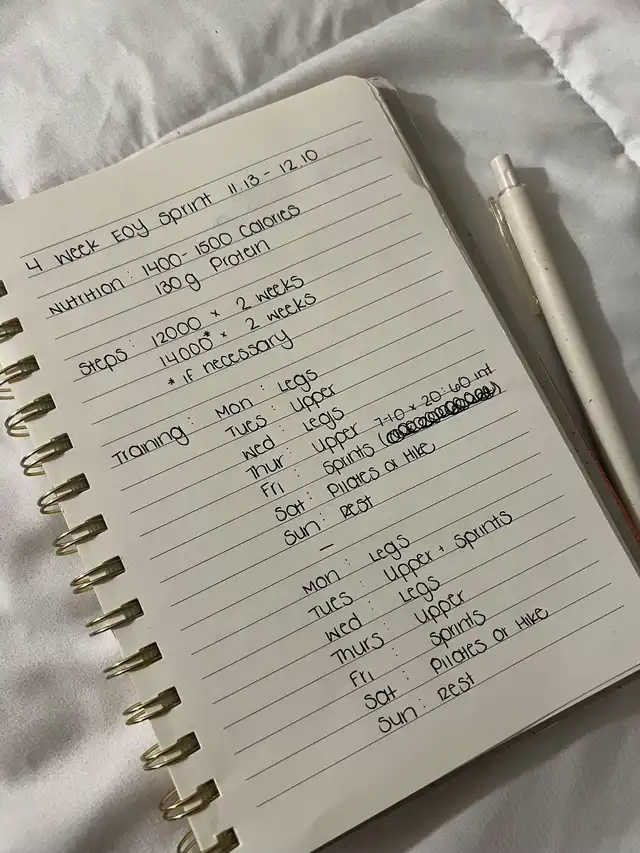 4 Week EOY Sprint 11.13 - 12.10
Nutrition: 1400-1500 Calories
130g Protein
Steps: 12000 x 2 weeks
14000* x 2 weeks
* if necessary
Training: Mon: Legs
Tues: Upper
Wed: Legs
Thur: Upper
Fri: Sprints (7-10 x 20:60 int)
Sat: Pilates or Hike
Sun: Rest
—
Mon: Legs
Tues: Upper + Sprints
Wed: Legs
Thurs: Upper
Fri: Sprints
Sat: Pilates or Hike
Sun: Rest